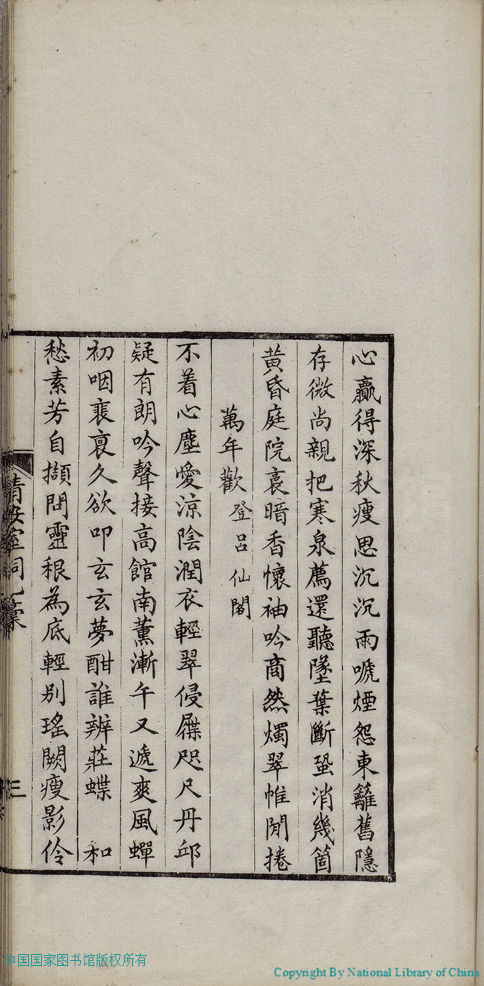 心羸得深秋瘦思沉沉雨唬煙怨東籬舊隱
存微尚親把寒泉薦還聽墜葉斷蛩消幾箇
黃昏庭院裛暗香懷袖吟商然燭翠帷閒捲
萬年歡登呂仙閣
不着心塵愛涼陰潤衣輕翠侵屧咫尺丹邱
疑有朗吟聲接高館南薰漸午又遞爽風蟬
初咽裴裒久欲叩玄玄夢酣誰辨莊蝶 和
愁素芳自擷問靈根為底輕別瑤闕瘦影伶
三
中国国家图书馆版权所有
Copyright By National Library of China